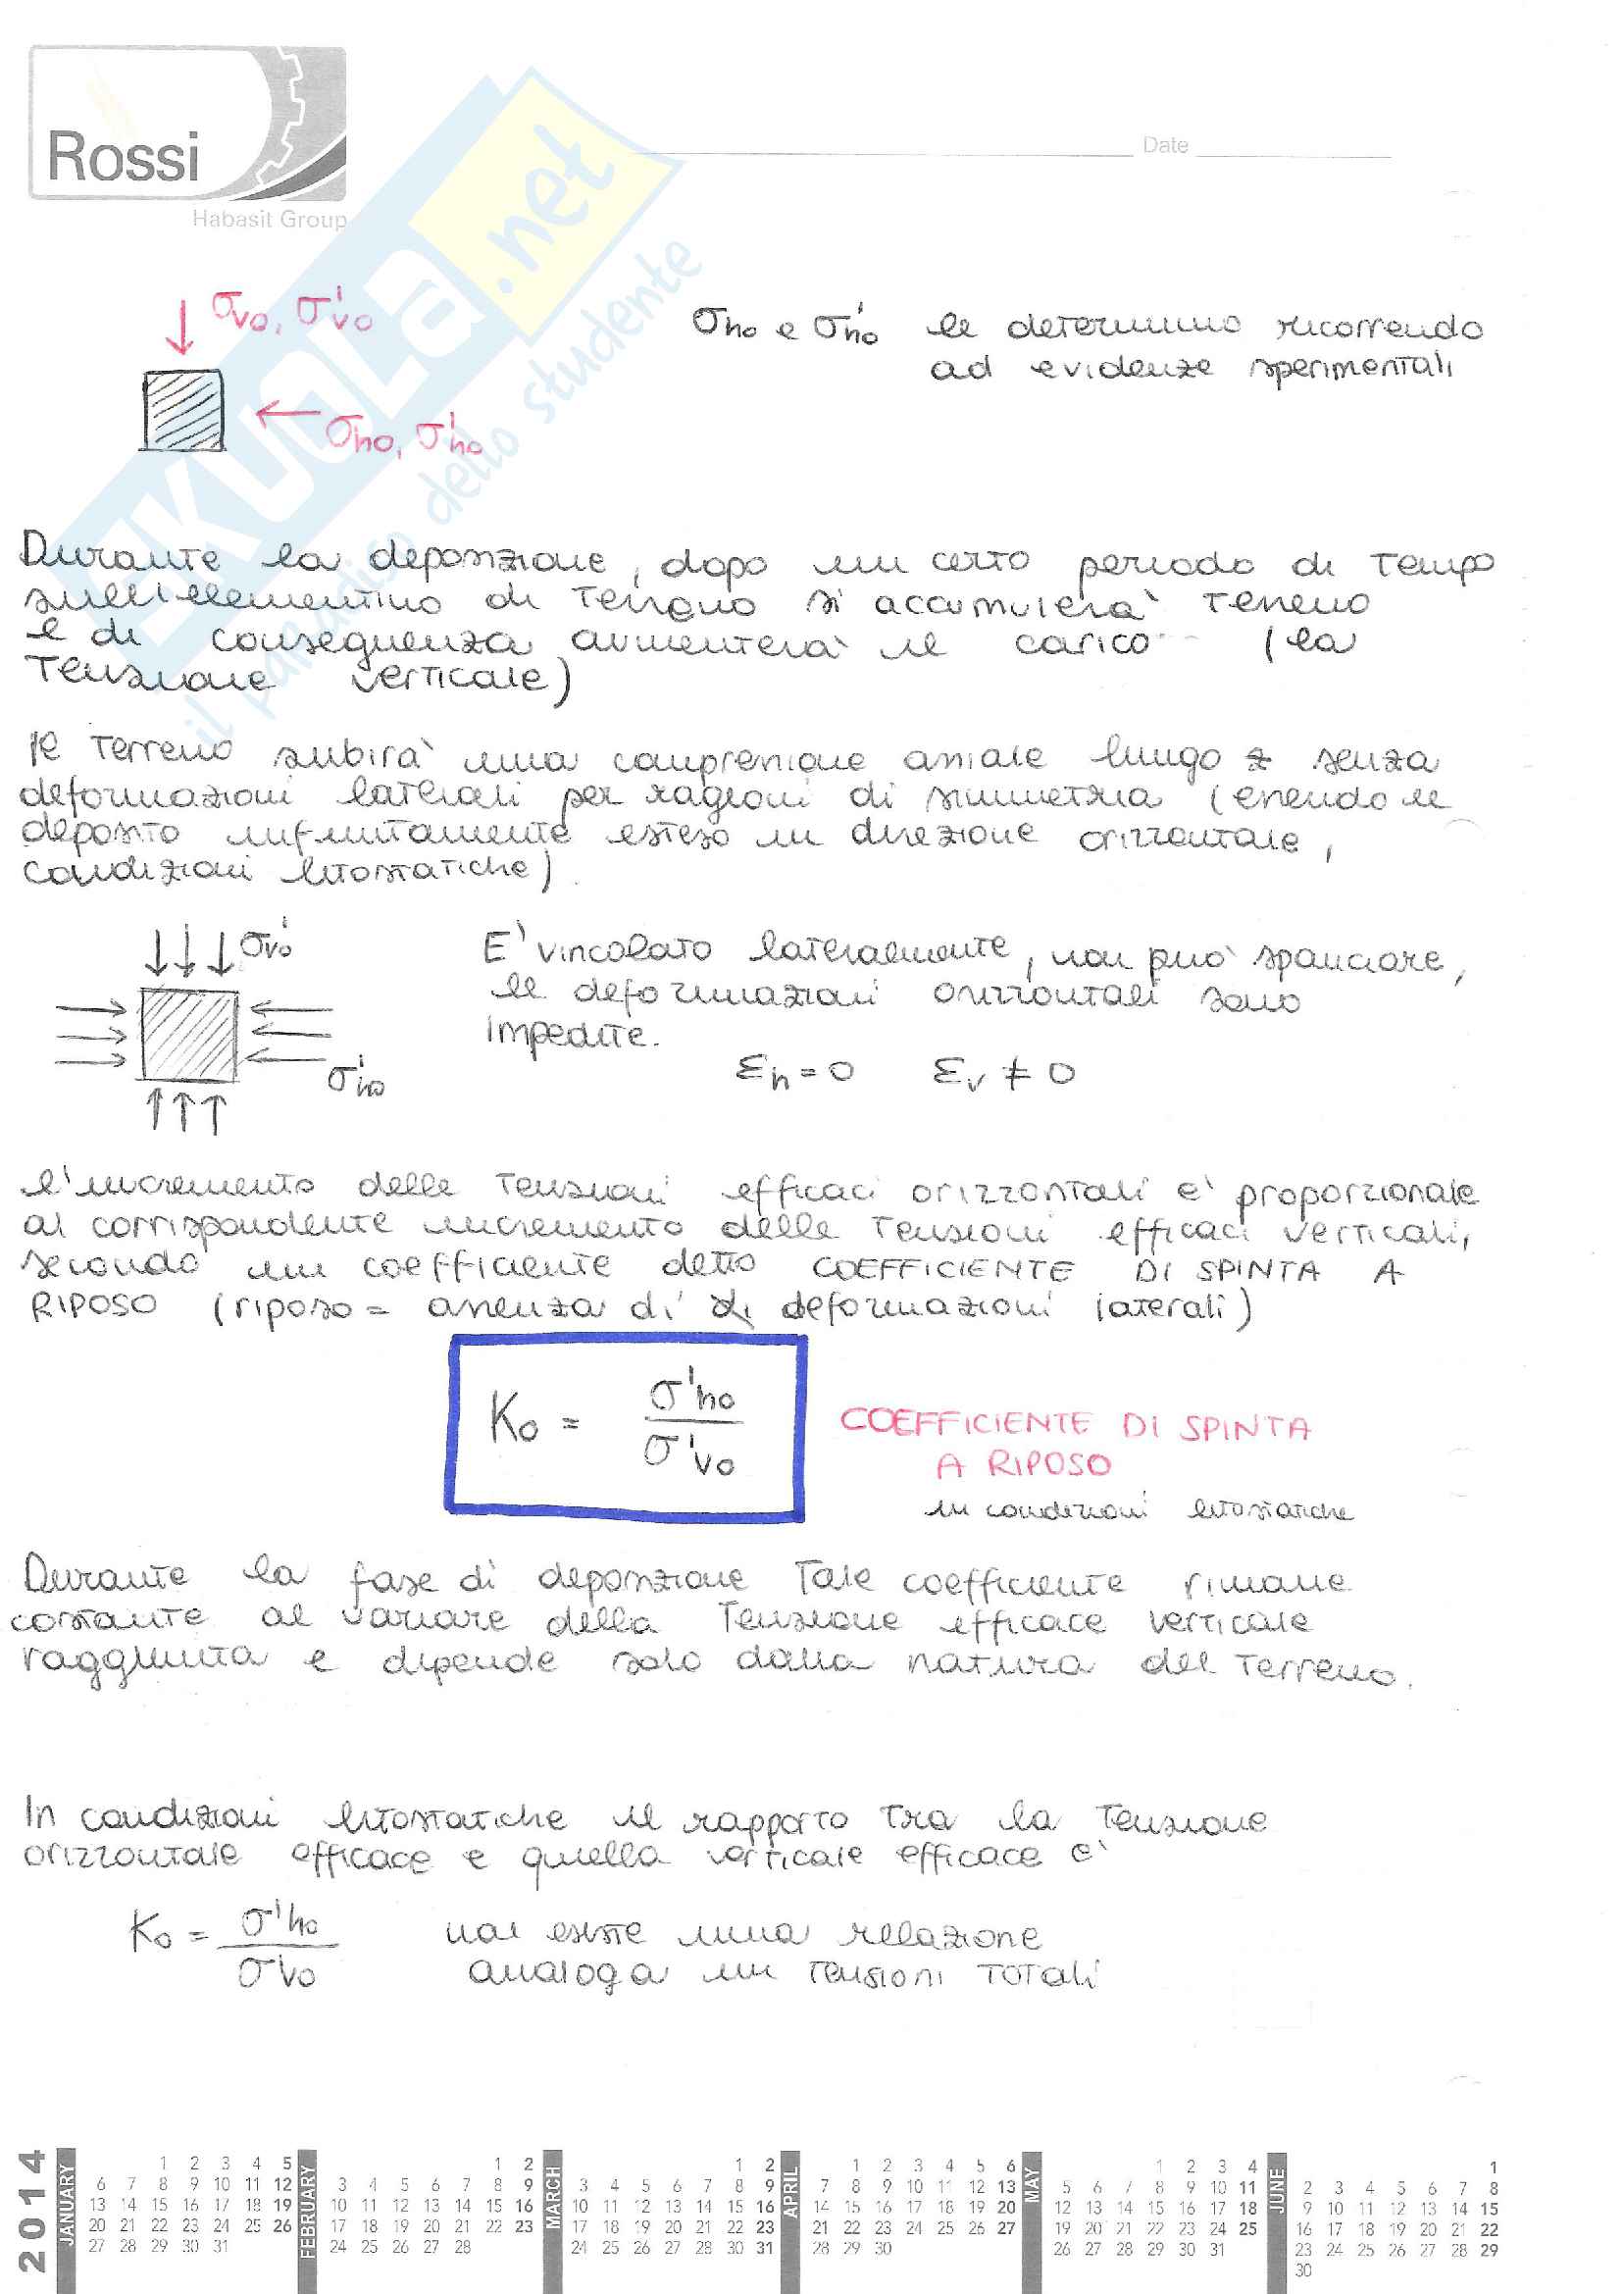 Rossi
Habasit Group
Date
SKUOLA.net
il paradiso dello studente
σvo, σ'vo
σho, σ'ho
σho e σ'ho le determino ricorrendo
ad evidenze sperimentali
Durante la deposizione, dopo un certo periodo di tempo
sull'elementino di terreno si accumulerà terreno
e di conseguenza aumenterà il carico (la
tensione verticale)
Il terreno subirà una compressione assiale lungo z senza
deformazioni laterali per ragioni di simmetria (essendo il
deposito infinitamente esteso in direzione orizzontale,
condizioni litostatiche)
σ'vo
σ'ho
E' vincolato lateralmente, non può spanciare,
le deformazioni orizzontali sono
impedite.
εh = 0 εv ≠ 0
l'incremento delle tensioni efficaci orizzontali è proporzionale
al corrispondente incremento delle tensioni efficaci verticali,
secondo un coefficiente detto COEFFICIENTE DI SPINTA A
RIPOSO (riposo = assenza di deformazioni laterali)
Ko = σ'ho / σ'vo
COEFFICIENTE DI SPINTA
A RIPOSO
in condizioni litostatiche
Durante la fase di deposizione tale coefficiente rimane
costante al variare della tensione efficace verticale
raggiunta e dipende solo dalla natura del terreno.
In condizioni litostatiche il rapporto tra la tensione
orizzontale efficace e quella verticale efficace è
Ko = σ'ho / σ'vo
non esiste una relazione
analoga in tensioni totali
2014
JANUARY
1 2 3 4 5
6 7 8 9 10 11 12
13 14 15 16 17 18 19
20 21 22 23 24 25 26
27 28 29 30 31
FEBRUARY
1 2
3 4 5 6 7 8 9
10 11 12 13 14 15 16
17 18 19 20 21 22 23
24 25 26 27 28
MARCH
1 2
3 4 5 6 7 8 9
10 11 12 13 14 15 16
17 18 19 20 21 22 23
24 25 26 27 28 29 30 31
APRIL
1 2 3 4 5 6
7 8 9 10 11 12 13
14 15 16 17 18 19 20
21 22 23 24 25 26 27
28 29 30
MAY
1 2 3 4
5 6 7 8 9 10 11
12 13 14 15 16 17 18
19 20 21 22 23 24 25
26 27 28 29 30 31
JUNE
1
2 3 4 5 6 7 8
9 10 11 12 13 14 15
16 17 18 19 20 21 22
23 24 25 26 27 28 29
30